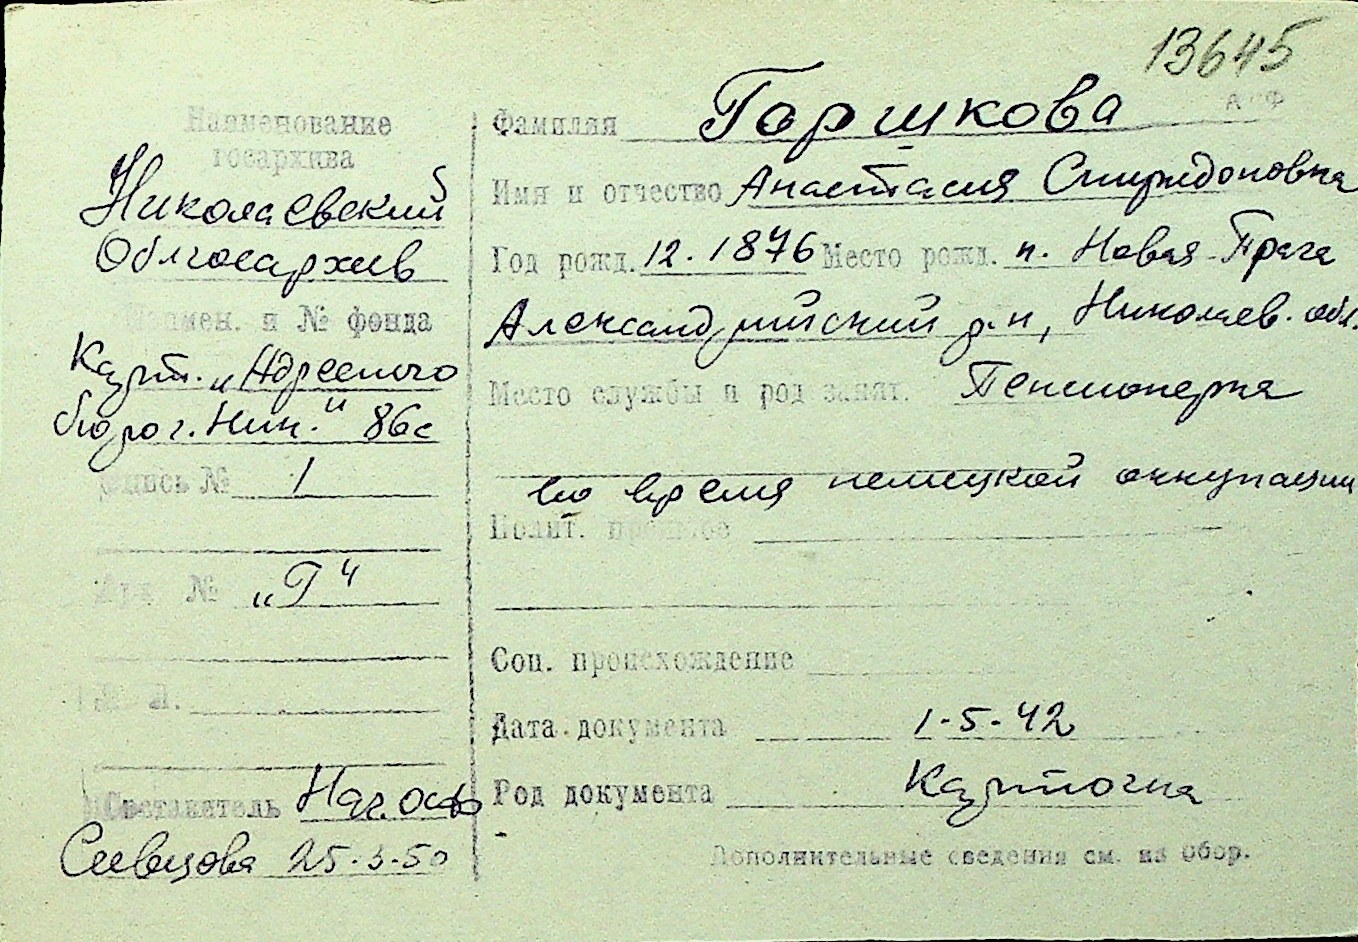 13645
А Ф
Наименование
госархива
Николаевский
Облгосархив
Наимен. и № фонда
Карт. „Адресного
бюро г. Ник." 86с
Опись № 1
№ „Г"
Составитель Нач. ОСФ
Сивцова 25-3-50
Фамилия Горшкова
Имя и отчество Анастасия Спиридоновна
Год рожд. 12.1876 Место рожд. п. Новая-Прага
Александрийский р-н, Николаев. обл.
Место службы и род занят. Пенсионерка
во время немецкой оккупации
Полит. прошлое
Соц. происхождение
Дата документа 1-5-42
Род документа Карточка
Дополнительные сведения см. на обор.